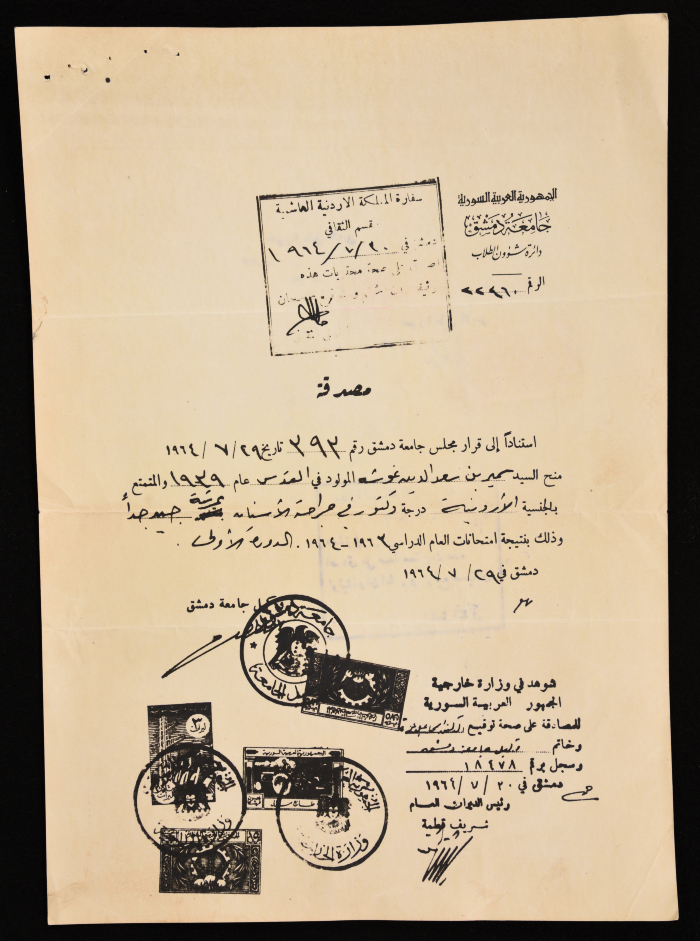 الجمهورية العربية السورية
جامعة دمشق
دائرة شؤون الطلاب
الرقم ٢٢٤٦٠
سفارة المملكة الاردنية الهاشمية
قسم الثقافي
دمشق في ١٩٦٤/٧/٣٠
صحة محتويات هذه
مصدقة
استناداً إلى قرار مجلس جامعة دمشق رقم ٣٩٣ تاريخ ٢٩/ ٧ /١٩٦٤
منح السيد سمير بن سعد الدين غوشه المولود في القدس عام ١٩٣٩ والمتمتع
بالجنسية الأردنية درجة دكتور في جراحة الأسنان بمرتبة جيد جداً
وذلك بنتيجة امتحانات العام الدراسي ١٩٦٣-١٩٦٤. الدورة الأولى.
دمشق في ٢٩/ ٧ /١٩٦٤
وكيل جامعة دمشق
جامعة دمشق
شوهد في وزارة خارجية
الجمهور العربية السورية
للمصادقة على صحة توقيع
وخاتم وكيل جامعة دمشق
وسجل برقم ١٨٤٧٨
دمشق في ٣٠/ ٧ /١٩٦٤
رئيس الديوان العام
شريف قطية
٣
الجمهورية العربية السورية
وزارة الخارجية